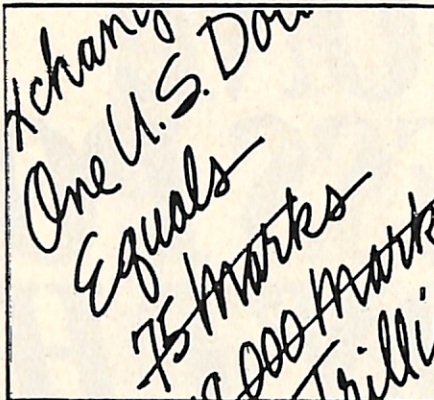 xchang
One U.S. Dol
Equals
75 Marks
000 Mark
Trilli